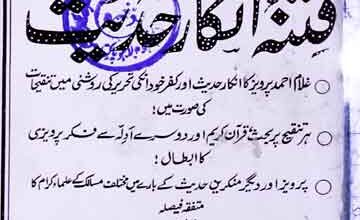 فتنۂ انکار حدیث
غلام احمد پرویز کا انکار حدیث اور کفر خود انکی تحریر کی روشنی میں تنقیحات
کی صورت میں؛
ہر تنقیح پر بحث قرآن کریم اور دوسرے ادلہ سے فکر پرویزی
کا ابطال؛
پرویز اور دیگر منکرین حدیث کے بارے میں مختلف مسالک کے علماء کرام کا
متفقہ فیصلہ